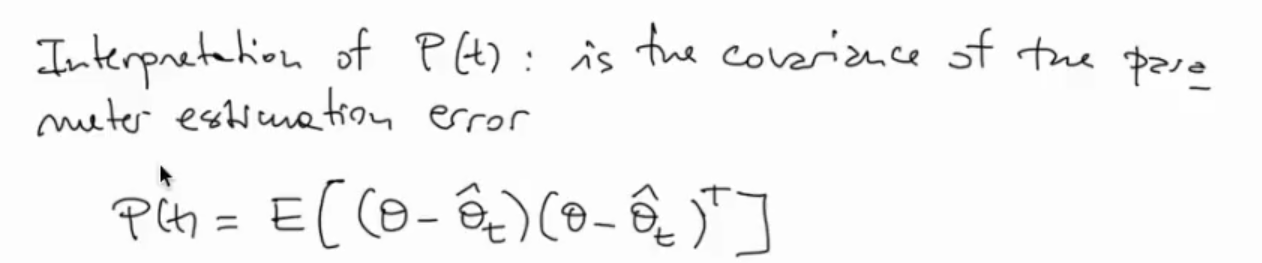 Interpretation of P(t): is the covariance of the para
meter estimation error
P(t) = E[(θ-θ̂_t)(θ-θ̂_t)^T]